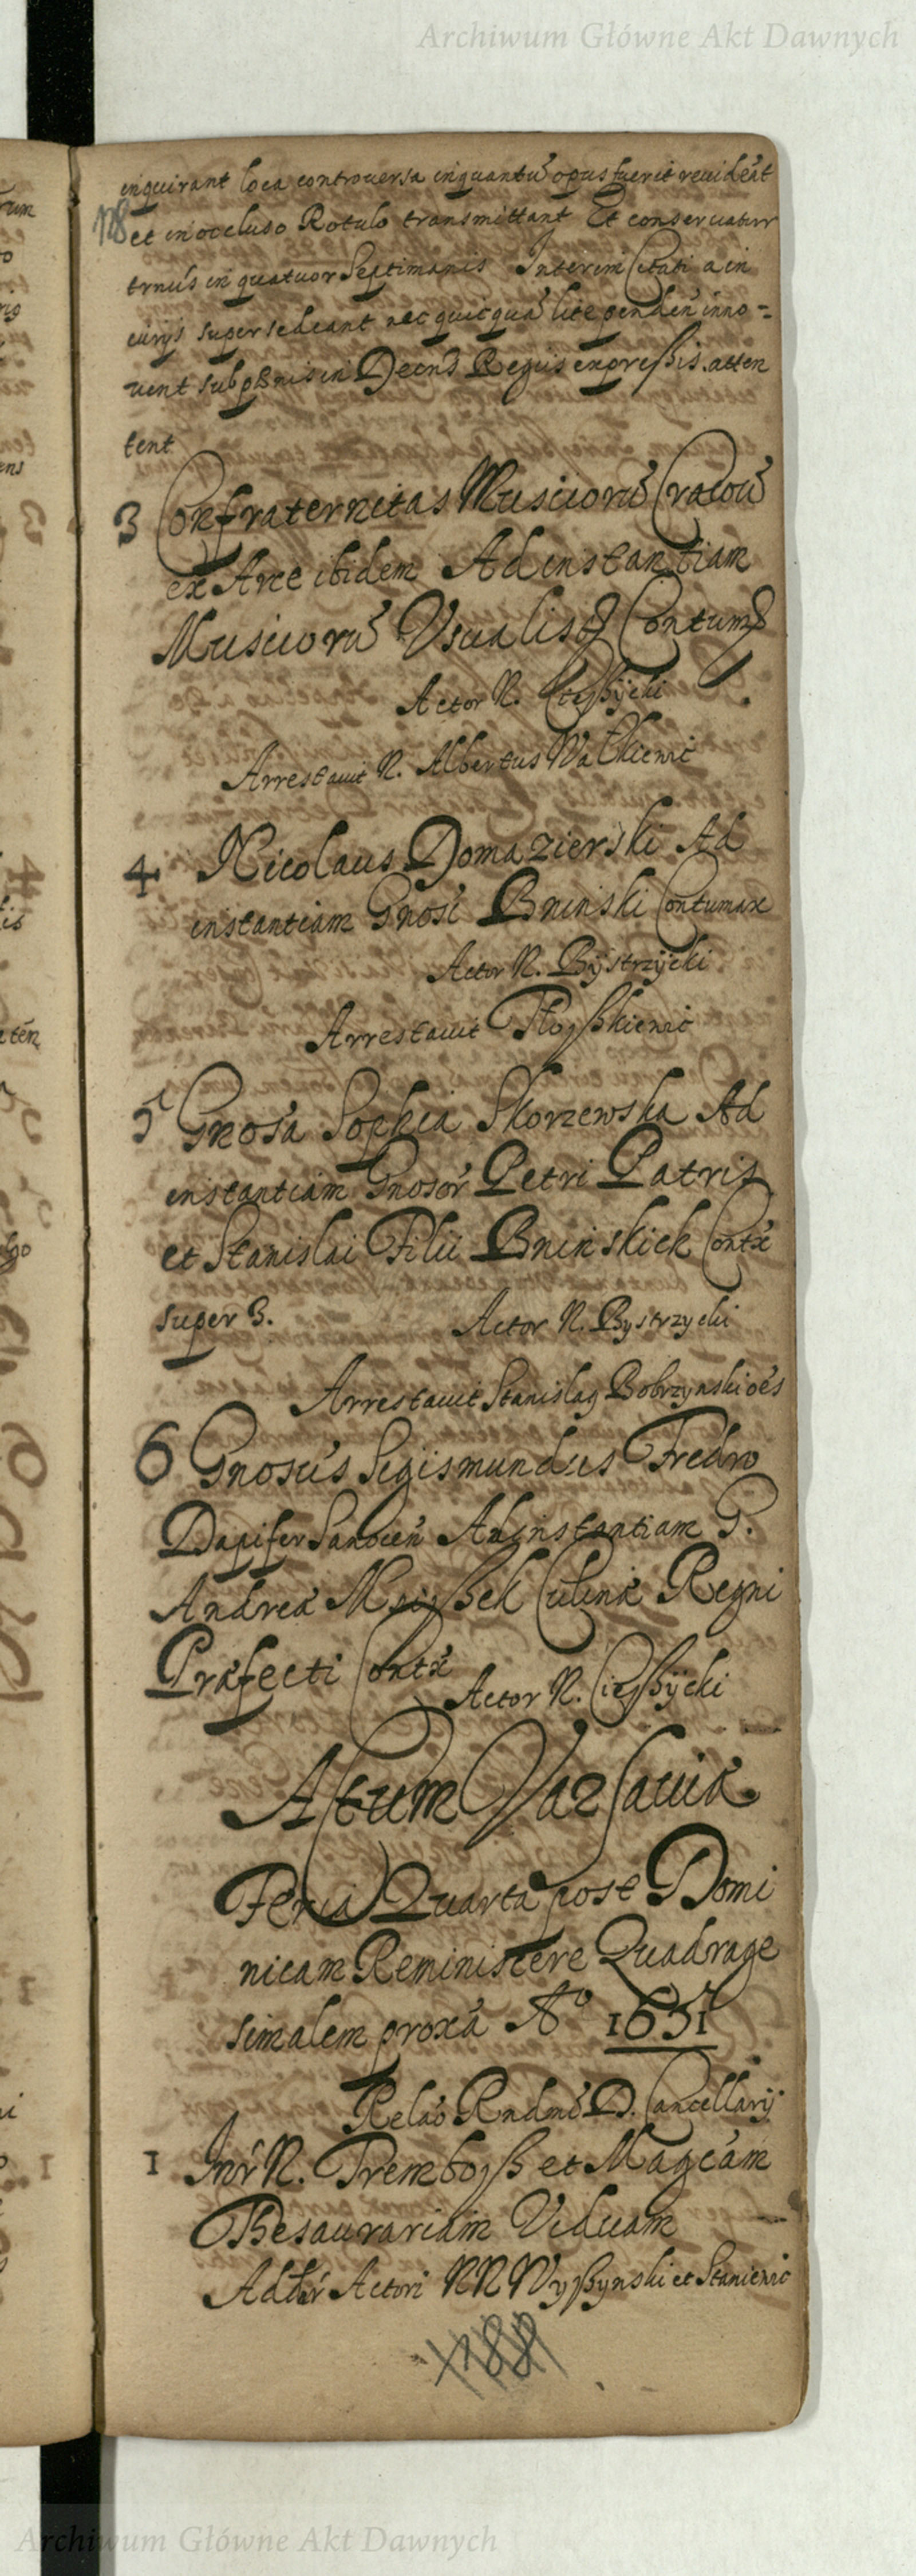 Archiwum Główne Akt Dawnych
inquirant loca controversa inquantũ opus fuerit revideãt
178
et in occluso Rotulo transmittant Et conservatur
in quatuor Septimanis Interim Citati a in
iurijs supersedeant nec quicquã lite pendeñ inno =
vent sub pænis in Decrõ Regis expressis atten
tent
3 Confraternitas Musicorũ Cracoũ
ex Arce ibidem Ad instantiam
Musicorũ Usualis Contum
Actor N.
Arrestavit N. Albertus
4 Nicolaus Domazierski Ad
instantiam Gnosi Bninski Contumax
Actor N. Bystrzycki
Arrestavit
5 Gnosa Sophia Skorzewska Ad
instantiam Gnosor Petri Patris
et Stanislai Filii Bninskich Contx
super 3. Actor N. Bystrzycki
Arrestavit Stanislaq Bobrzynski oẽs
6 Gnosus Sigismundus Fredro
Dapifer Sanocieñ Ad instantiam G.
Andreæ Culinæ Regni
Præfecti Contx
Actor N.
Actum Varsaviæ
Feria Quarta post Domi
nicam Reminiscere Quadrage
simalem proxã Aº 1651
Relaõ Rndmi D. Cancellarij
1 Intr N. et
Thesaurariam Viduam
Actori NN Wyszynski et
188
Archiwum Główne Akt Dawnych